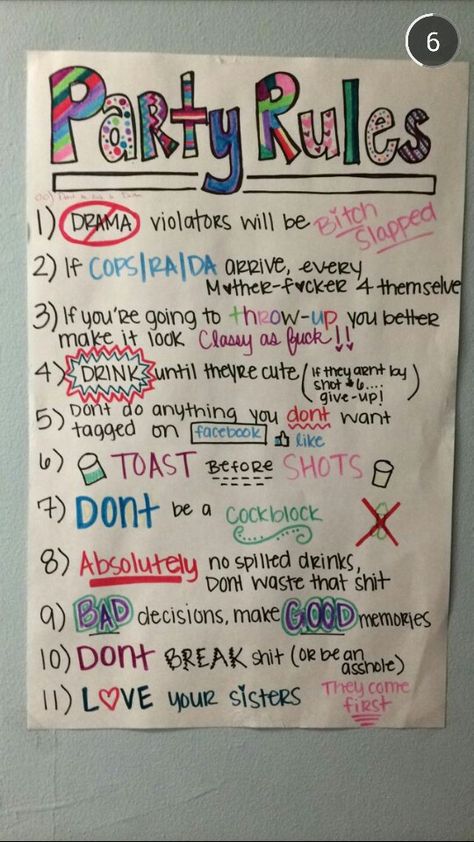 6
Party Rules
1) DRAMA violators will be Bitch Slapped
2) If COPS/RA/DA ARRIVE, every
M♥ther-f♥cker 4 themselve
3) If you're going to throw-up, you better
make it look Classy as fuck!!
4) DRINK until they're cute (If they arn't by
shot #6....
give-up!)
5) Dont do anything you dont want
tagged on facebook like
6) TOAST Before SHOTS
7) Dont be a cockblock
8) Absolutely no spilled drinks,
Dont waste that shit
9) BAD decisions, make GOOD memories
10) Dont BREAK shit (or be an
asshole)
11) L♥VE your sisters They come
first